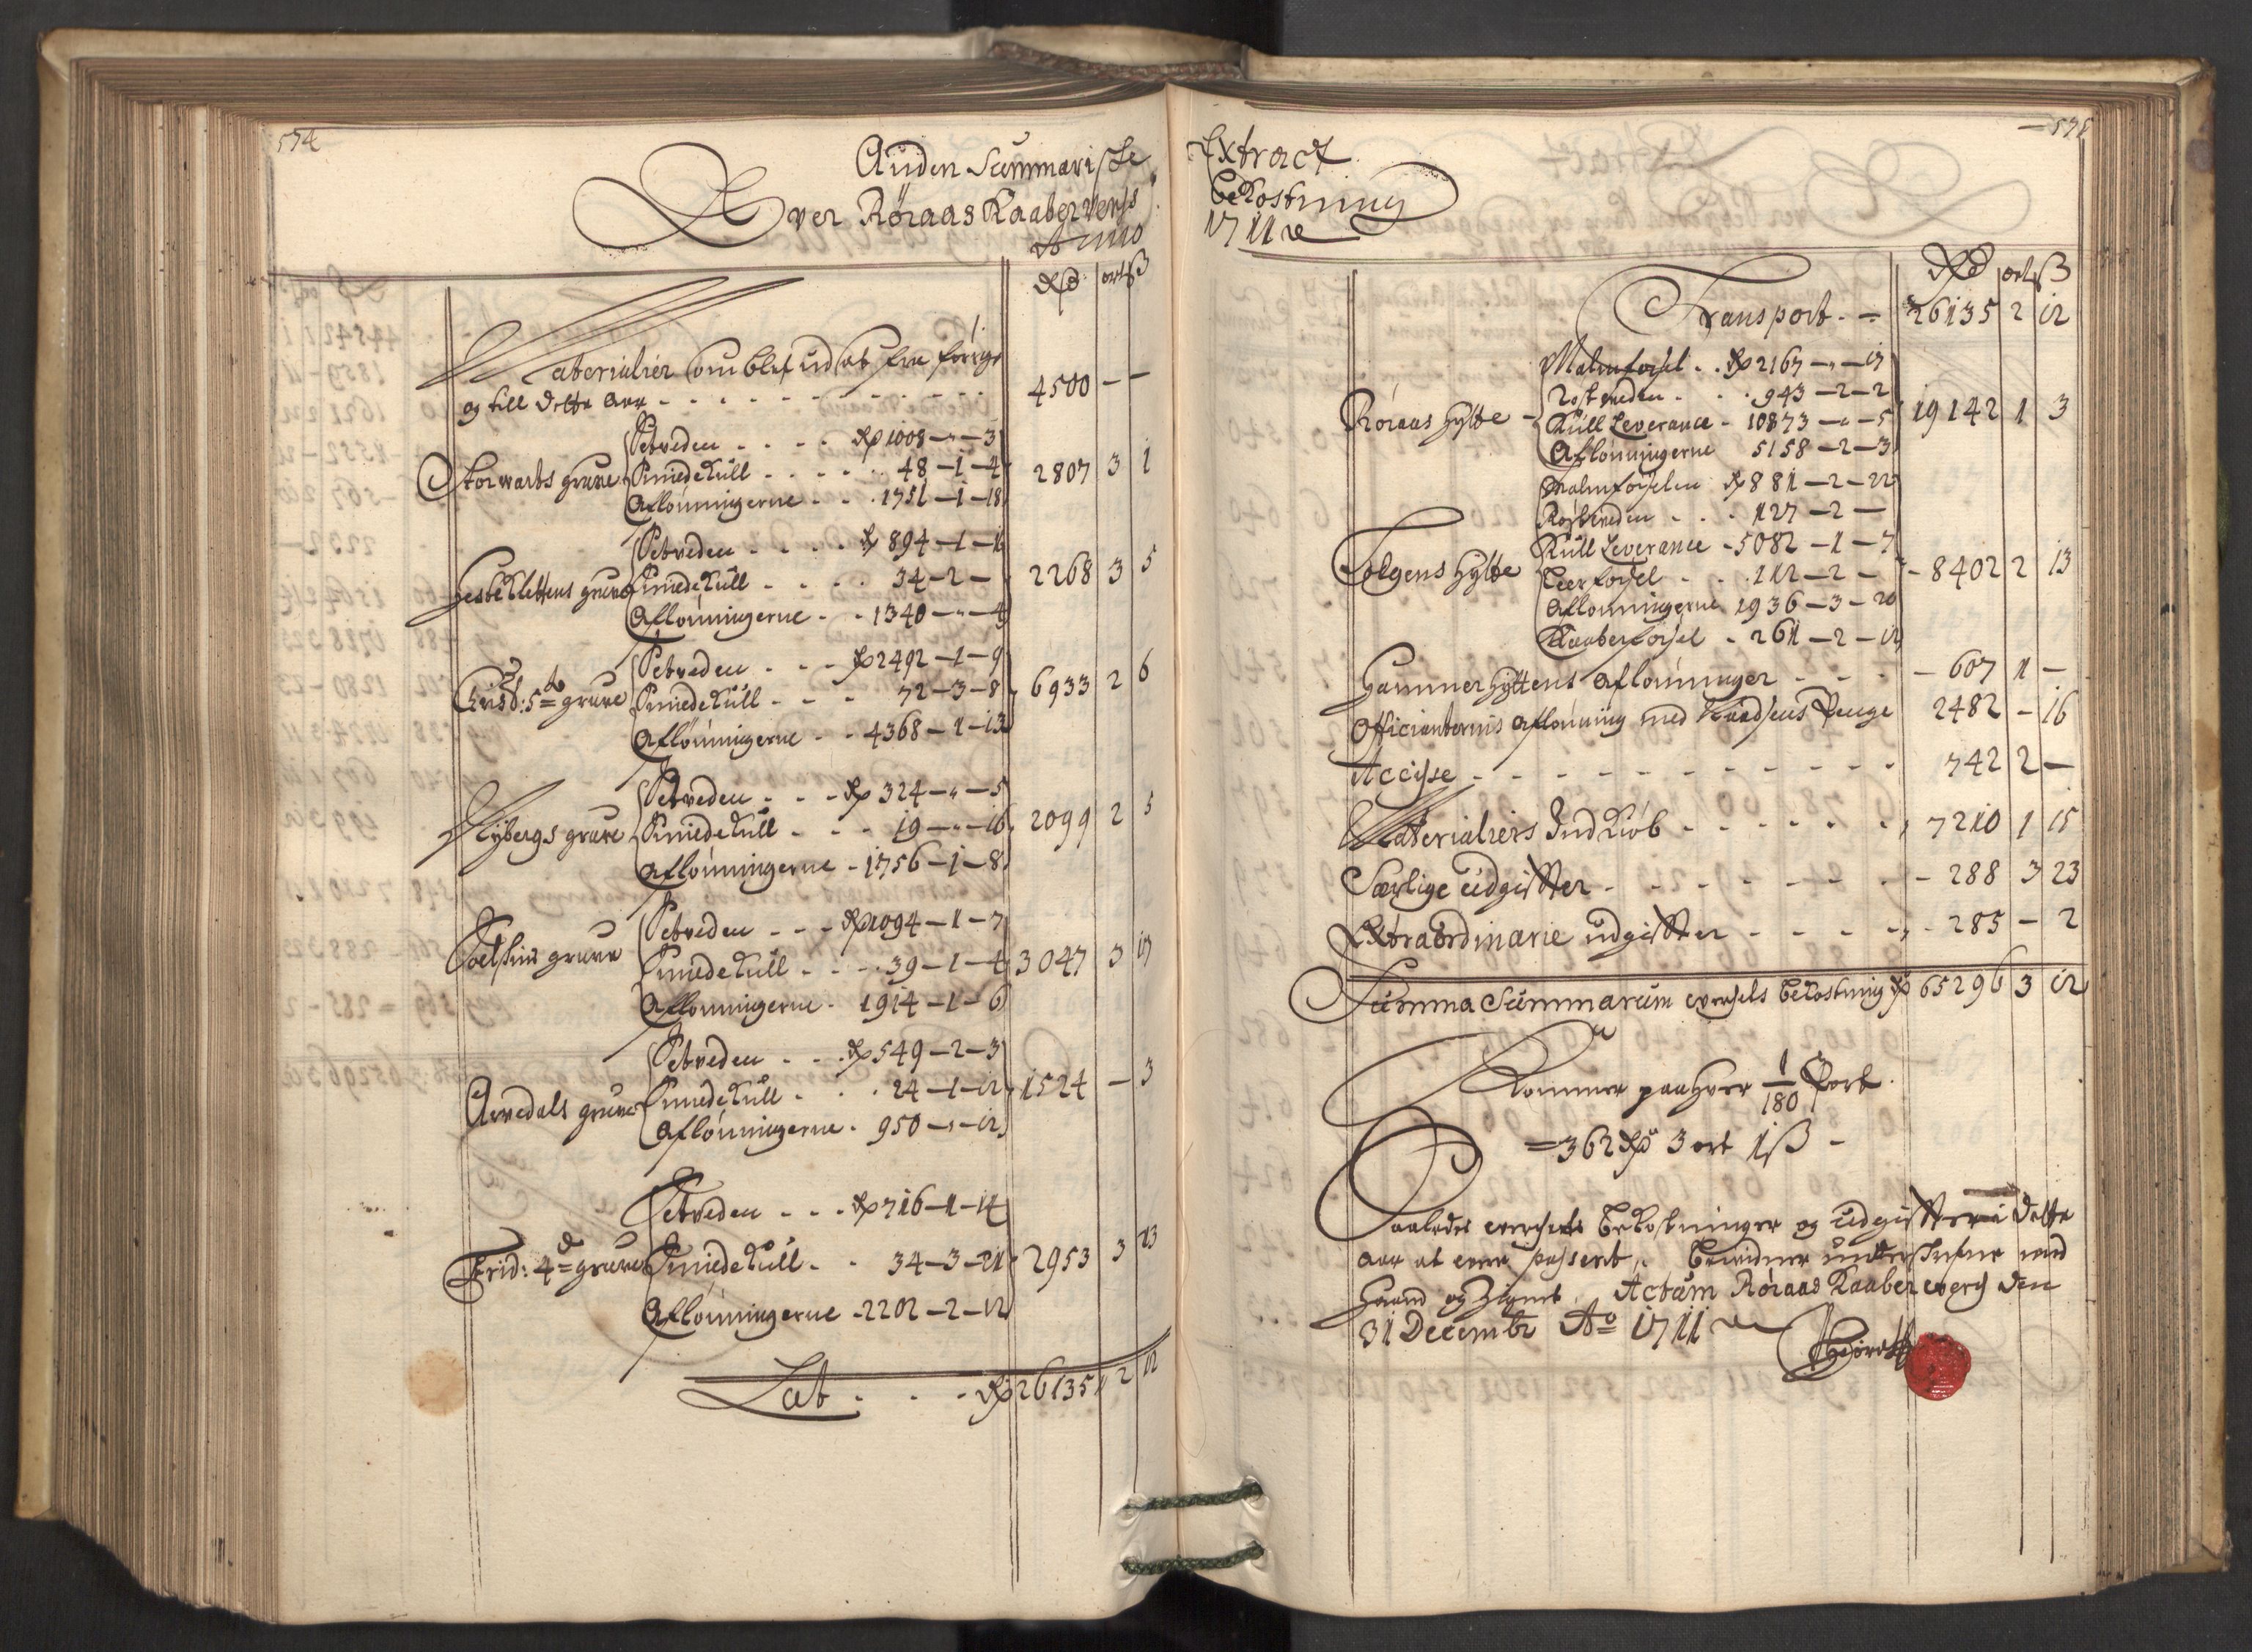 574
Anden Summariske
Over Røraas Kaaberverks
Anno
Rd ort ß
Materialier som blef ud at fra forrige
og till dette Aar - - - 4500 - -
Storwarts grue
Setveden - - - Rd 1008 - " - 3
Smiedekull - - - 48 - 1 - 4
Aflønningerne - - 1751 - 1 - 18
2807 3 1
Hestklettens grue
Setveden - - - Rd 894 - 1 - 1
Smiedekull - - - 34 - 2 -
Aflønningerne - - 1340 - " - 4
2268 3 5
Christ: 5te grue
Setveden - - - Rd 2492 - 1 - 9
Smiedekull - - - 72 - 3 - 8
Aflønningerne - - 4368 - 1 - 13
6933 2 6
Nybergs grue
Setveden - - - Rd 324 - " - 5
Smiedekull - - - 19 - " - 16
Aflønningerne - 1756 - 1 - 8
2099 2 5
grue
Setveden - - - Rd 1094 - 1 - 7
Smiedekull - - - 39 - 1 - 4
Aflønningerne - 1914 - 1 - 6
3047 3 17
Arvedals grue
Setveden - - - Rd 549 - 2 - 3
Smiedekull - - - 24 - 1 - 12
Aflønningerne - 950 - " - 12
1524 - 3
Frid: 4de grue
Setveden - - - Rd 716 - 1 - 14
Smiedekull - - 34 - 3 - 11
Aflønningerne - 2202 - 2 - 12
2953 3 13
Lat - - - Rd 26135 2 12
575
Extract
Bekostning
1711
Rd ort ß
Transport - - 26135 2 12
Røraas Hytte
Malmførsel - - Rd 2167 - " - 17
Rostveden - - 943 - 2 - 2
Kull Leverance - 10873 - " - 5
Aflønningerne 5158 - 2 - 3
19142 1 3
Tolgens Hytte
Malmførselen Rd 881 - 2 - 22
Rostveden - - - 127 - 2 -
Kull Leverance - 5082 - 1 - 7
Leerførsel - - - 112 - 2 -
Aflønningerne 1936 - 3 - 20
Kaaberførsel - 261 - 2 - 12
8402 2 13
Hammer Hyttens Aflønninger - - - 607 1 -
Officianternis Aflønning med Penge 2482 - 16
Accisse - - - 742 2 -
Materialiers Indkiøb - - - 7210 1 15
Særlige udgifter - - - 288 3 23
Extraordinarie udgifter - - - 285 - 2
Summa Summarum Bekostning Rd 65296 3 12
Kommer paa hver 1/180 Part
= 362 Rd 3 ort 1 ß -
Saaledes Bekostninger og udgifter i dette
Aar at være passerit, bevidner underskrefne med
Haand og Signet. Actum Røraas Kaaberverch den
31 Decembr Ao 1711